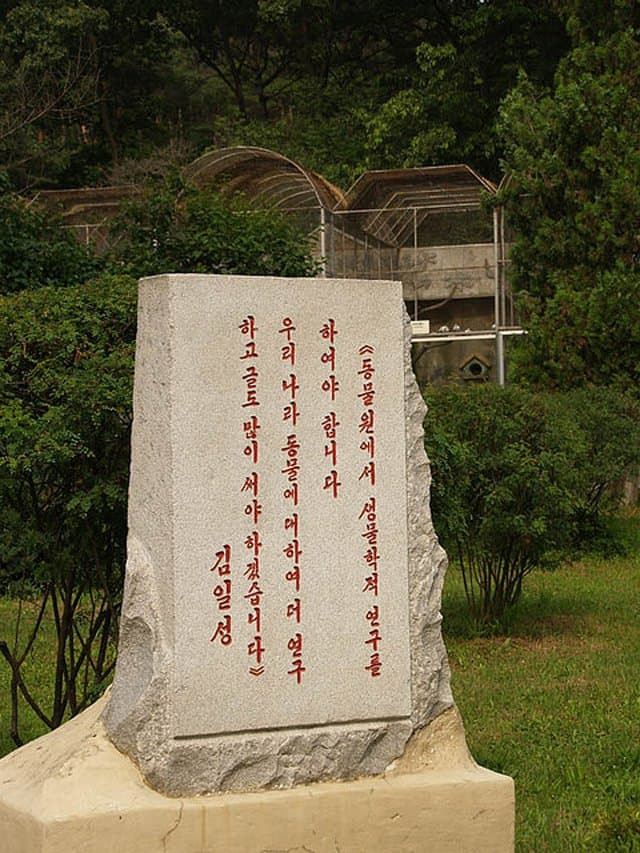 《동물원에서 생물학적 연구를
하여야 합니다
우리 나라 동물에 대하여 더 연구
하고 글도 많이 써야 하겠습니다》
김일성